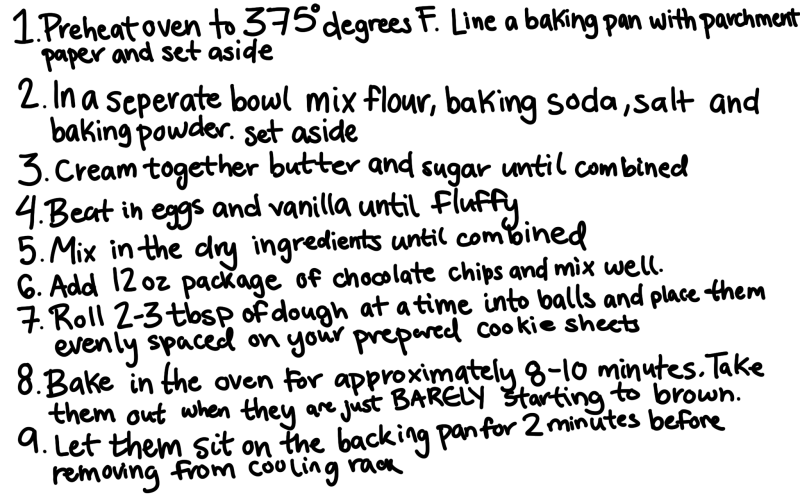 1. Preheat oven to 375° degrees F. Line a baking pan with parchment
paper and set aside
2. In a seperate bowl mix flour, baking soda, salt and
baking powder. set aside
3. Cream together butter and sugar until combined
4. Beat in eggs and vanilla until fluffy
5. Mix in the dry ingredients until combined
6. Add 12 oz package of chocolate chips and mix well.
7. Roll 2-3 tbsp of dough at a time into balls and place them
evenly spaced on your prepared cookie sheets
8. Bake in the oven for approximately 8-10 minutes. Take
them out when they are just BARELY starting to brown.
9. Let them sit on the backing pan for 2 minutes before
removing from cooling rack